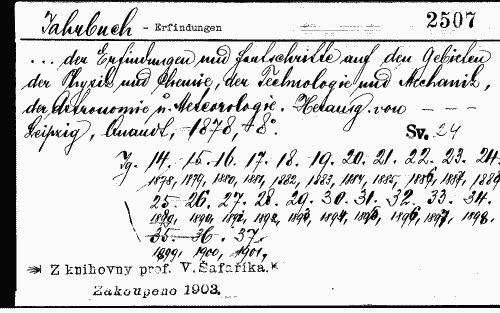 Jahrbuch - Erfindungen 2507
... der Erfindungen und Fortschritte auf den Gebieten
der Physik und Chemie, der Technologie und Mechanik,
der Astronomie u. Meteorologie. Herausg. von - - -
Leipzig, Quandt, 1878, 8°. Sv. 24
Jg. 14. 15. 16. 17. 18. 19. 20. 21. 22. 23. 24.
1878, 1879, 1880, 1881, 1882, 1883, 1884, 1885, 1886, 1887, 1888
25. 26. 27. 28. 29. 30. 31. 32. 33. 34.
1889, 1890, 1891, 1892, 1893, 1894, 1895, 1896, 1897, 1898.
35. 36. 37.
1899, 1900, 1901,
* Z knihovny prof. V. Šafaříka. *
Zakoupeno 1903.